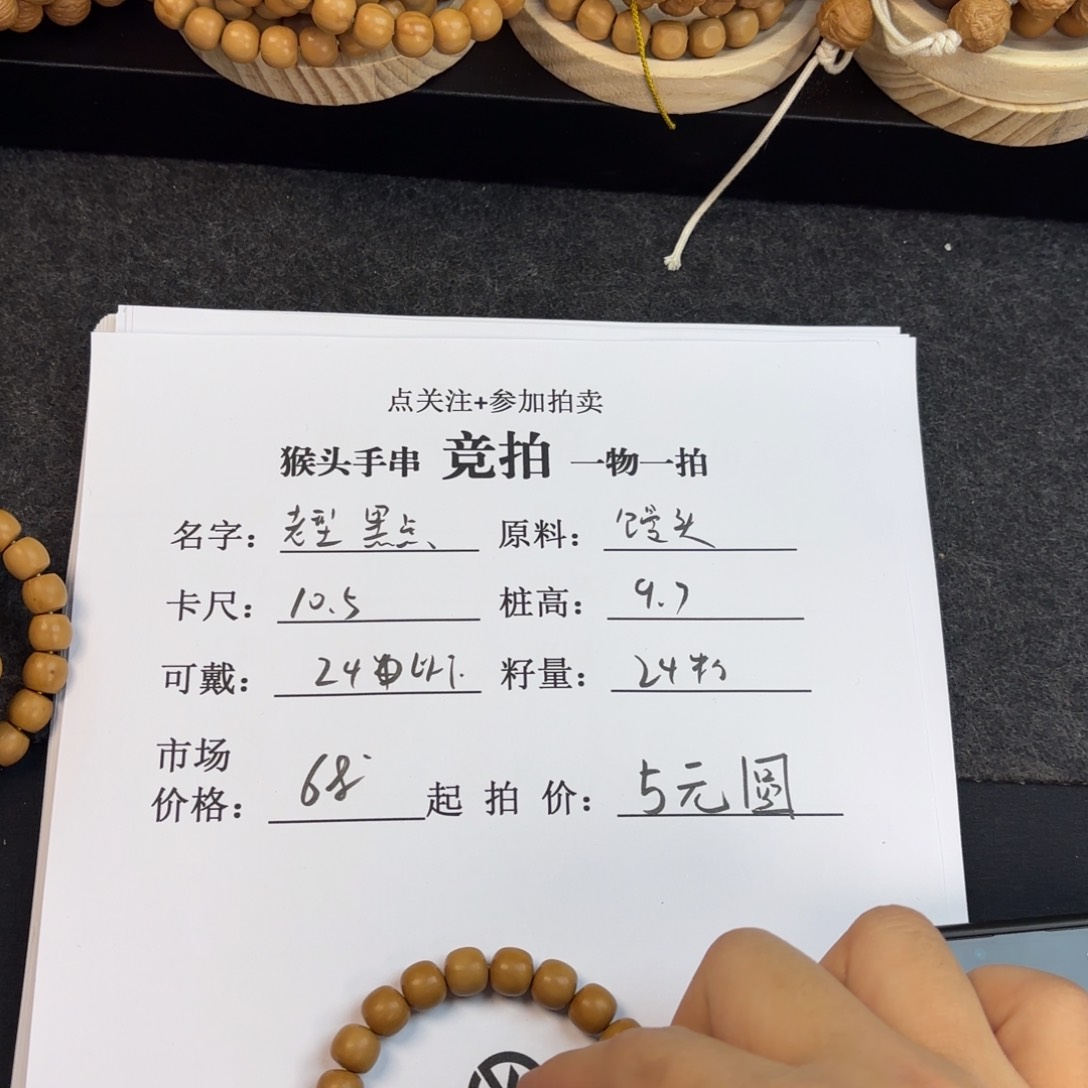 点关注+参加拍卖
猴头手串 竞拍 一物一拍
名字：老型 黑点、 原料：馒头
卡尺：10.5 桩高：9.7
可戴：24 以下. 籽量：24籽
市场
价格：68 起拍价：5元圆